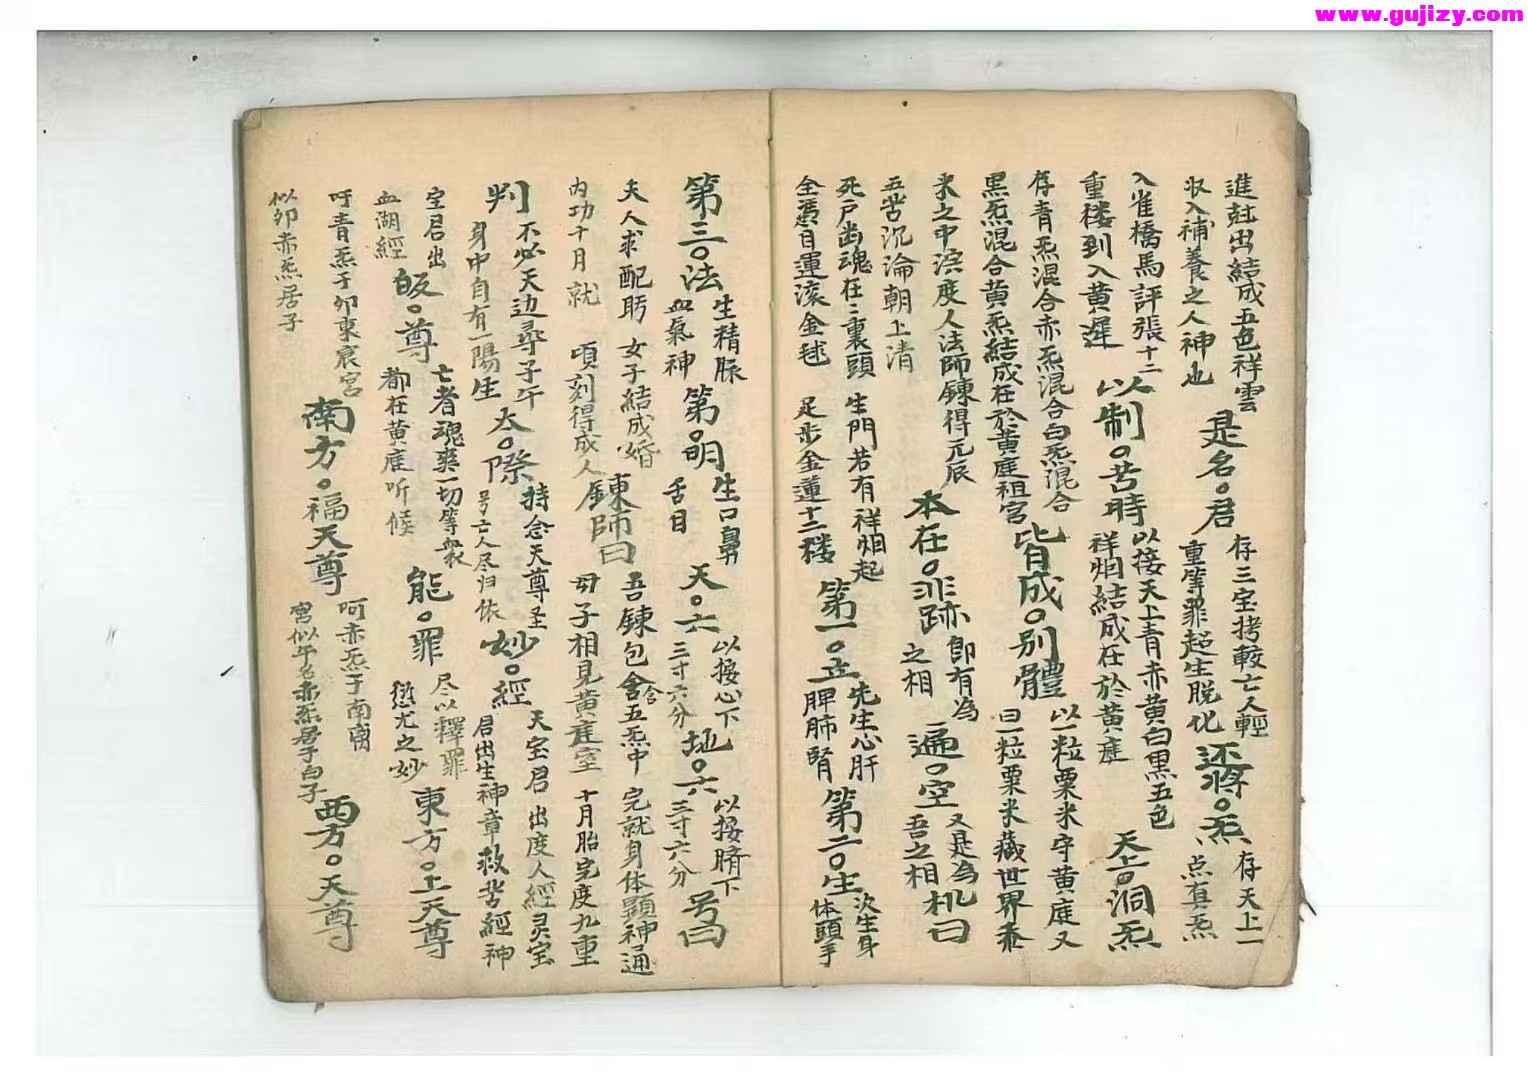 www.gujizy.com
進㪺出結成五色祥雲 是名。君 存三宝拷較亡人輕重等罪超生脱化 还將。炁 存天上一点真炁
収入補養之人神也
入雀橋馬評張十二重楼到入黄遅 以制。苦時 以接天上青赤黄白黒五色祥烟結成在於黄庭 天上。洞炁
存青炁混合赤炁混合白炁混合黒炁混合黄炁結成在於黄庭祖宫 皆成。別體 以一粒粟米守黄庭又曰一粒粟米藏世界
來之中 度人法師鍊得元辰 本在。非跡 即有為之相 遍。空 又是為吾之相 机曰
五苦沉淪朝上清
死户幽魂在三裏頭 生門若有祥烟起
全凴目運滚金毬 足步金蓮十二楼 第一。正 先生心肝脾肺腎 第二。生 次生身体頭手
第三。法 生精脉血氣神 第。明 生口鼻舌目 天。六 以接心下三寸六分 地。六 以接臍下三寸六分 号曰
夫人求配 女子結成婚
内功十月就 頃刻得成人 鍊師曰 吾鍊包含含五炁中 完就身体顕神通
母子相見黄庭室 十月胎完度九重
判 不必天边尋子午身中自有一陽生 太。際 持念天尊圣号亡人尽归依 妙。經 天宝君出度人經灵宝君出生神章救苦經神宝君出血湖經
皈。尊 亡者魂爽一切等衆都在黄庭听候 能。罪 尽以釋罪愆尤之妙 東方。上天尊
呵青炁于卯東宸宫似卯赤炁居子 南方。福天尊 呵赤炁于南 宫似午名赤炁居子白子 西方。天尊